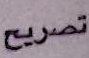 تصريح